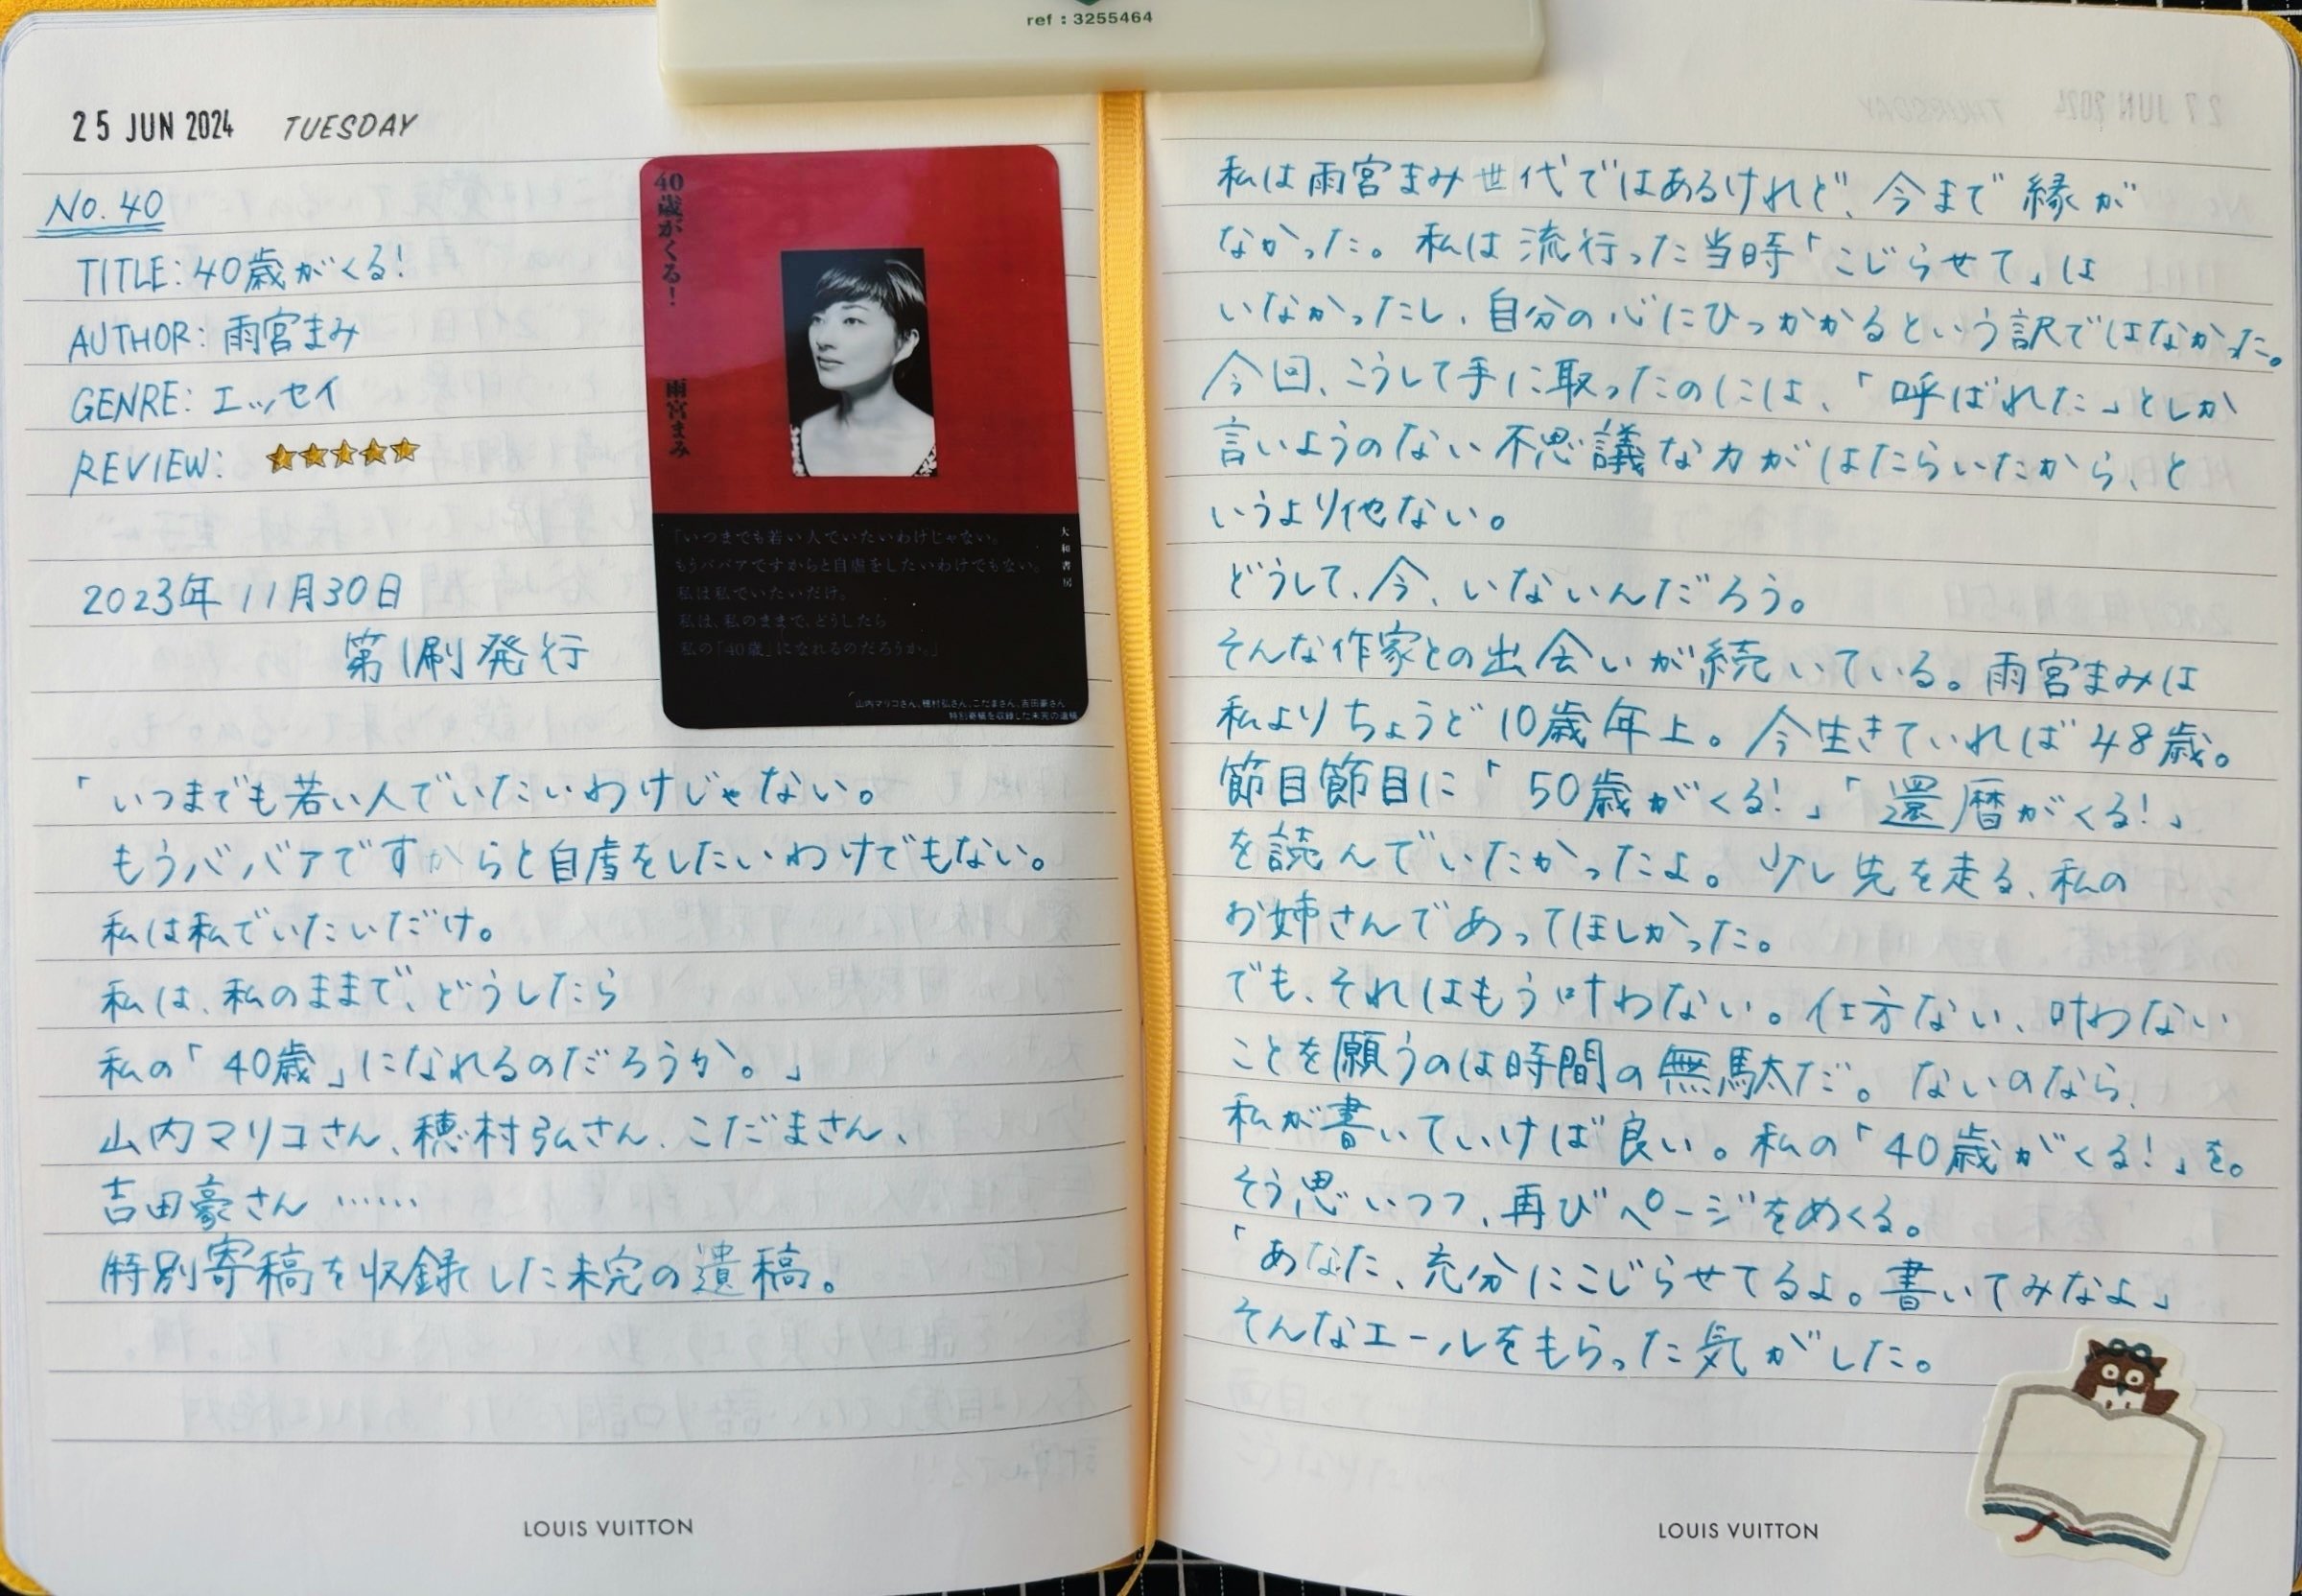 ref : 3255464
25 JUN 2024 TUESDAY
No. 40
TITLE: 40歳がくる!
AUTHOR: 雨宮まみ
GENRE: エッセイ
REVIEW:
2023年11月30日
第1刷発行
40歳がくる!
雨宮まみ
「いつまでも若い人でいたいわけじゃない。
もうババアですからと自虐をしたいわけでもない。
私は私でいたいだけ。
私は、私のままで、どうしたら
私の「40歳」になれるのだろうか。」
大和書房
山内マリコさん、穂村弘さん、こだまさん、吉田豪さん
特別寄稿を収録した未完の遺稿
「いつまでも若い人でいたいわけじゃない。
もうババアですからと自虐をしたいわけでもない。
私は私でいたいだけ。
私は、私のままで、どうしたら
私の「40歳」になれるのだろうか。」
山内マリコさん、穂村弘さん、こだまさん、
吉田豪さん……
特別寄稿を収録した未完の遺稿。
LOUIS VUITTON
私は雨宮まみ世代ではあるけれど、今まで縁が
なかった。私は流行った当時「こじらせて」は
いなかったし、自分の心にひっかかるという訳ではなかった。
今回、こうして手に取ったのには、「呼ばれた」としか
言いようのない不思議な力がはたらいたから、と
いうより他ない。
どうして、今、いないんだろう。
そんな作家との出会いが続いている。雨宮まみは
私よりちょうど10歳年上。今生きていれば48歳。
節目節目に「50歳がくる!」「還暦がくる!」
を読んでいたかったよ。少し先を走る、私の
お姉さんであってほしかった。
でも、それはもう叶わない。仕方ない、叶わない
ことを願うのは時間の無駄だ。ないのなら、
私が書いていけば良い。私の「40歳がくる!」を。
そう思いつつ、再びページをめくる。
「あなた、充分にこじらせてるよ。書いてみなよ」
そんなエールをもらった気がした。
LOUIS VUITTON